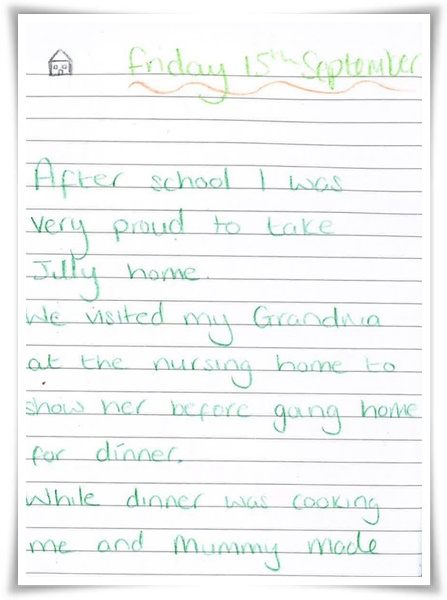 Friday 15th September
After school I was
very proud to take
Jilly home.
We visited my Grandma
at the nursing home to
show her before going home
for dinner.
While dinner was cooking
me and Mummy made